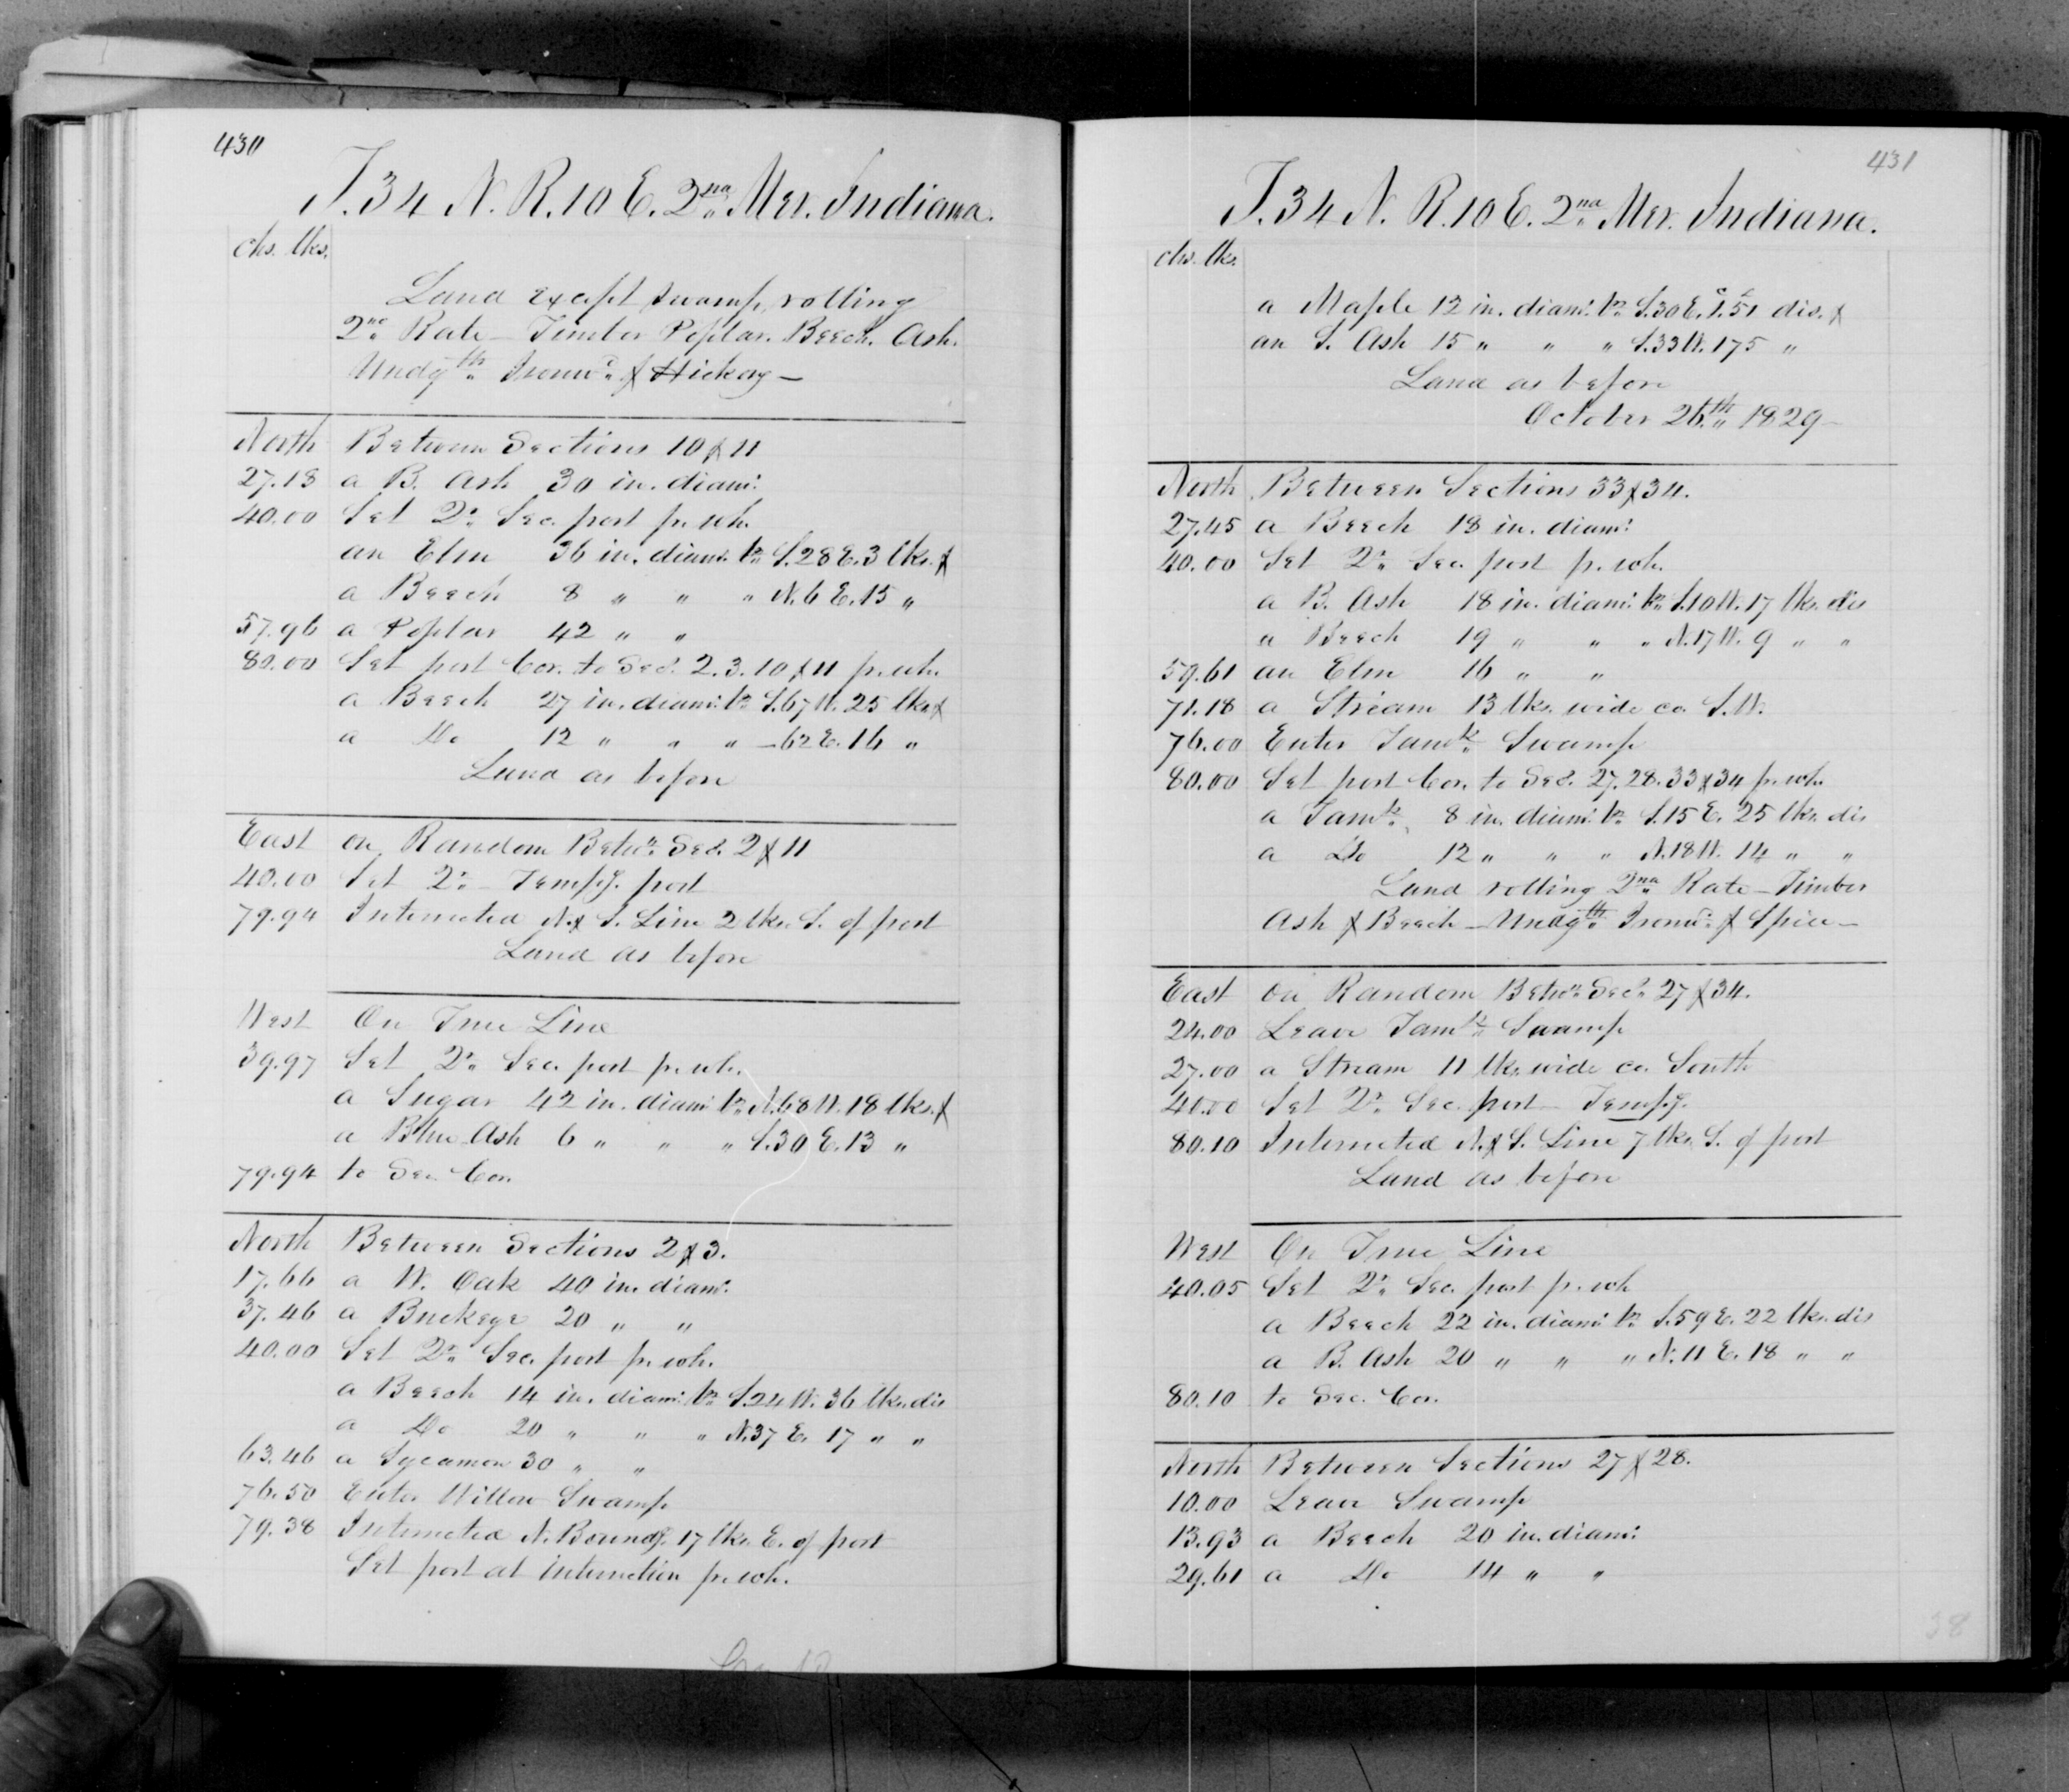 430
T. 34 N. R. 10 E. 2nd Mer. Indiana.
chs. lks.
Land except swamp, rolling
2nd Rate — Timber Poplar. Beech. Ash.
Undgth Ironwd & Hickory —
North Between Sections 10 & 11
27.18 a B. Ash 30 in. diam:
40.00 Set ¼ Sec. post pr. wh.
an Elm 36 in. diam: br S. 28 E. 3 lks. &
a Beech 8 " " " N. 6 E. 15 "
57.96 a Poplar 42 " "
80.00 Set post Cor. to Secs. 2. 3. 10 & 11 pr. wh.
a Beech 27 in. diam: br S. 67 W. 25 lks. &
a Do 12 " " " — 62 E. 16 "
Land as before
East on Random Betwn Secs. 2 & 11
40.00 Set ¼ Tempy. post
79.94 Intersected N. & S. Line 2 lks. S. of post
Land as before
West On True Line
39.97 Set ¼ Sec. post pr. wh.
a Sugar 42 in. diam: br N. 68 W. 18 lks. &
a Blue Ash 6 " " " S. 30 E. 13 "
79.94 to Sec. Cor.
North Between Sections 2 & 3.
17.66 a W. Oak 40 in. diam:
37.46 a Buckeye 20 " "
40.00 Set ¼ Sec. post pr. wh.
a Beech 14 in. diam: br S. 24 W. 36 lks. dis
a Do 20 " " " N. 37 E. 17 " "
63.46 a Sycamore 30 " "
76.50 Enter Willow Swamp
79.38 Intersected N. Boundy. 17 lks. E. of post
Set post at intersection pr. wh.
431
T. 34 N. R. 10 E. 2nd Mer. Indiana.
chs. lks.
a Maple 12 in. diam: br S. 30 E. 1.51 dis. &
an S. Ash 15 " " " S. 33 W. 175 "
Land as before
October 26th 1829 —
North Between Sections 33 & 34.
27.45 a Beech 18 in. diam:
40.00 Set ¼ Sec. post pr. wh.
a B. Ash 18 in. diam: br S. 10 W. 17 lks. dis
a Beech 19 " " " N. 17 W. 9 " "
59.61 an Elm 16 " "
71.18 a Stream 13 lks. wide co. S. W.
76.00 Enter Tamk Swamp
80.00 Set post Cor. to Secs. 27. 28. 33 & 34 pr. wh.
a Tamk 8 in. diam: br S. 15 E. 25 lks. dis
a Do 12 " " " N. 18 W. 14 " "
Land rolling 2nd Rate — Timber
Ash & Beech — Undgth Ironwd & Spice —
East on Random Betwn Secs. 27 & 34.
24.00 Leave Tamk Swamp
27.00 a Stream 11 lks. wide co. South
40.00 Set ¼ Sec. post — Tempy.
80.10 Intersected N. & S. Line 7 lks. S. of post
Land as before
West On True Line
40.05 Set ¼ Sec. post pr. wh
a Beech 22 in. diam: br S. 59 E. 22 lks. dis
a B. Ash 20 " " " N. 11 E. 18 " "
80.10 to Sec. Cor.
North Between Sections 27 & 28.
10.00 Leave Swamp
13.93 a Beech 20 in. diam:
29.61 a Do 14 " "
38